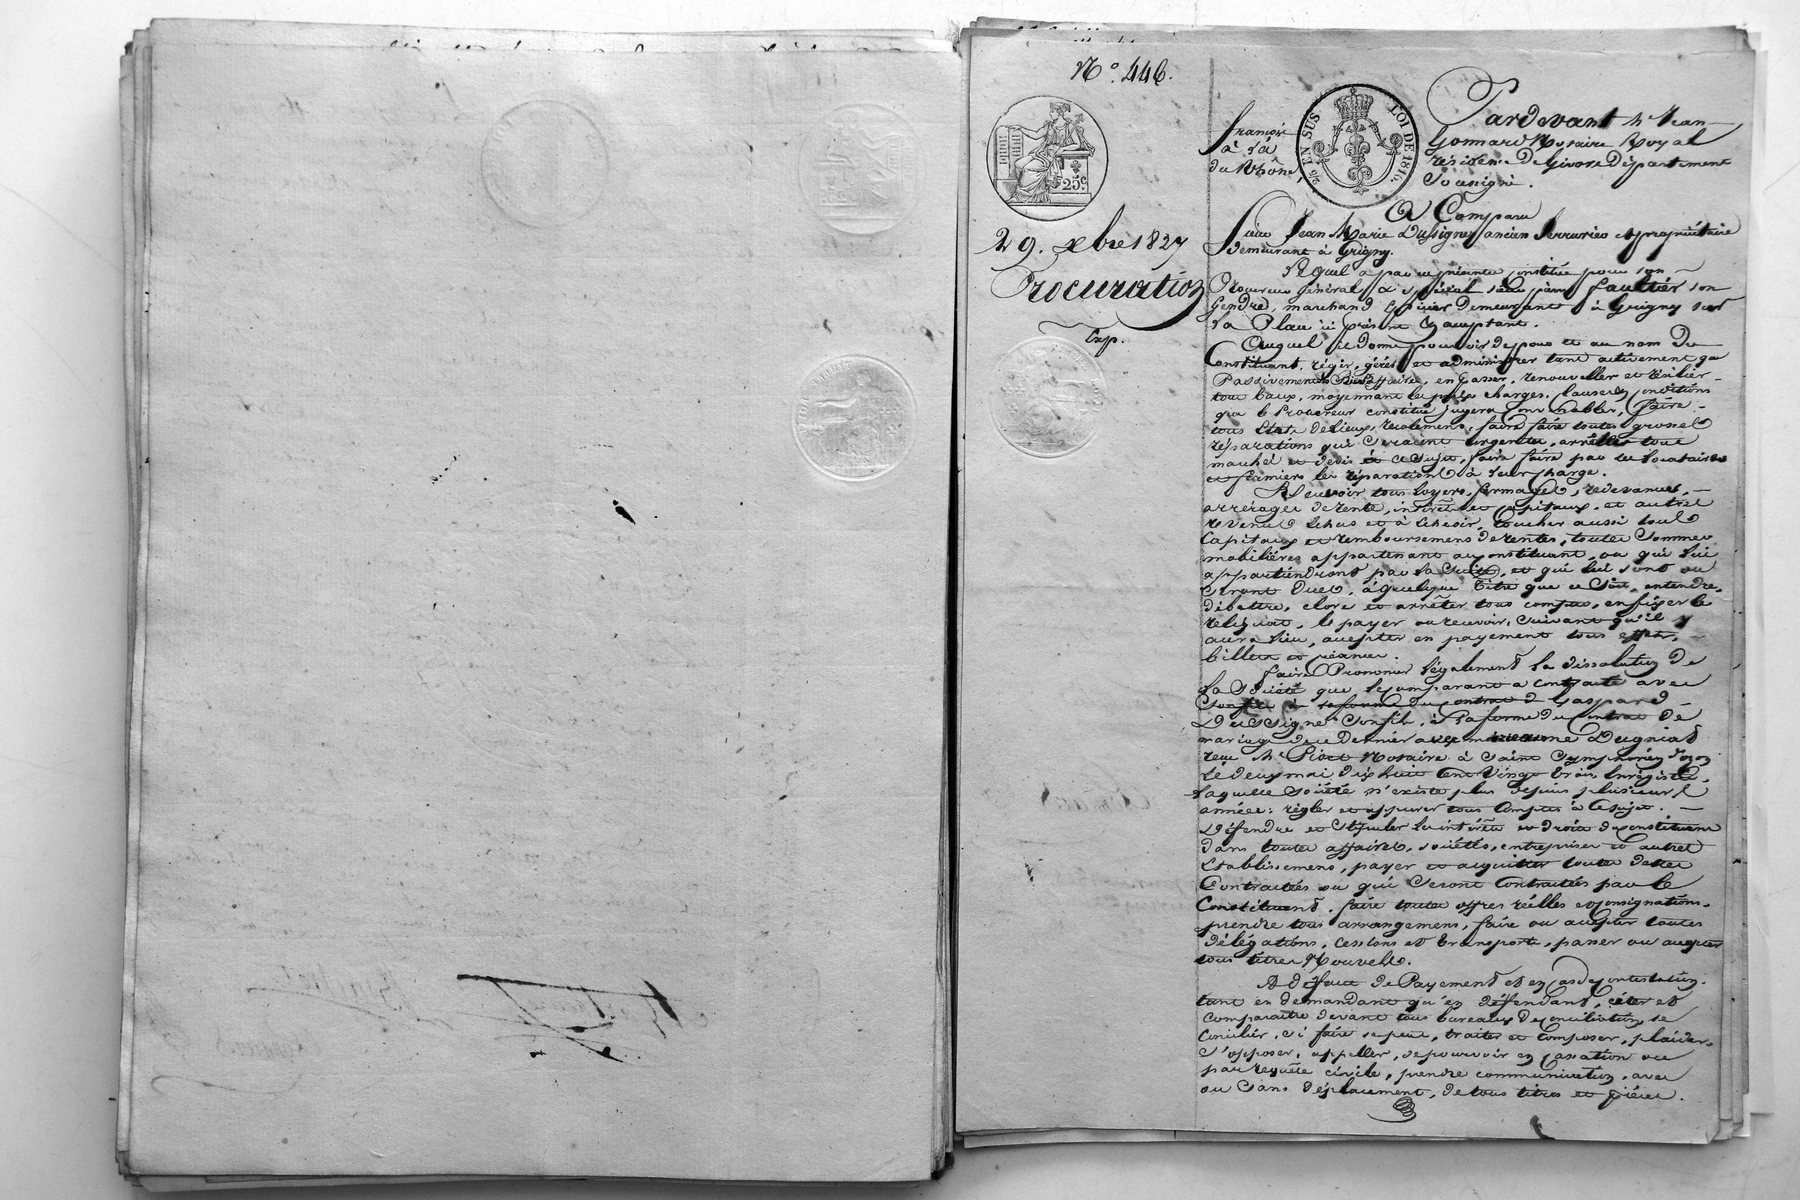 N.º 446.
25.c
29. xbre 1827
Procuration
Exp.
25 EN SUS
LOI DE 1816.
Pardevant Me Jean
françois Gonnard Notaire Royal
à la résidence de Givors Département
du Rhône Soussigné.
A Comparu
Sieur Jean Marie Dussigne ancien Serrurier et propriétaire
demeurant à Grigny.
Lequel a par ces présentes constitué pour son
Procureur général & spécial sieur pierre faultier son
Gendre, marchand Epicier demeurant à Grigny sur
la Place ici présent & acceptant.
Auquel il donne pouvoir de pour et au nom du
Constituant, régir, gérer et administrer tant activement que
Passivement ses affaires, en passer, renouveller et résilier
tous baux, moyennant les prix charges, clauses & conditions
que le Procureur constitué jugera convenables, faire
tous Etats de lieux, recolemens, faire faire toutes grosses
réparations qui seraient urgentes, arrêter tous
marchés et devis à ce sujet, faire faire par les locataires
et fermiers les réparations à leur charge.
Recevoir tous loyers, fermages, redevances,
arrerages de rente, intérêts et capitaux, et autres
revenus échus et à échoir, toucher aussi tous
Capitaux et remboursemens de rentes, toutes sommes
mobilières appartenant au constituant, ou qui lui
appartiendront par la suite, et qui lui sont ou
seront dues, à quelque titre que ce soit, entendre,
débattre, clore et arrêter tous comptes, en fixer le
reliquat, le payer ou recevoir, suivant qu'il y
aura lieu, accepter en payement tous effets,
billets et créances.
faire Prononcer légalement la dissolution de
la Société que le comparant a contracté avec
son fils à la forme du contrat de Gaspard
Dussigne son fils, à la forme du Contrat de
mariage de ce dernier avec
reçu Me Notaire à Saint Symphorien d'ozon
le deux mai dix huit cent vingt trois, Enregistré,
laquelle Société n'existe plus depuis plusieurs
années: régler et appurer tous Comptes à ce sujet.
Défendre et stipuler les intérêts et droits du constituant
dans toutes affaires, sociétés, entreprises et autres
Etablissemens, payer et acquitter toutes dettes
Contractées ou qui seront Contractées par le
Constituant. faire toutes offres réelles et consignations,
prendre tous arrangemens, faire ou accepter toutes
délégations, cessions et transports, passer ou accepter
tous titres Nouvels.
A défaut de Payement et en cas de contestation,
tant en demandant qu'en défendant, citer et
comparaitre devant tous bureaux de conciliation, se
concilier, si faire se peut, traiter et composer, plaider,
s'opposer, appeller, se pourvoir en cassation ou
par requête civile, prendre communication, avec
ou sans déplacement, de tous titres et pièces.